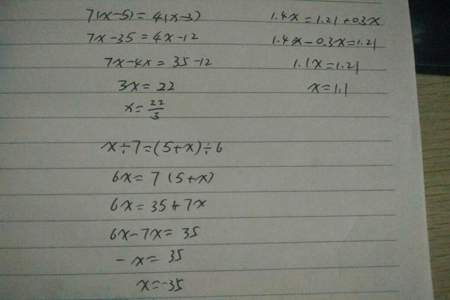 7(x-5)=4(x-3)
7x-35=4x-12
7x-4x=35-12
3x=22
x=22/3
1.4x=1.21+0.3x
1.4x-0.3x=1.21
1.1x=1.21
x=1.1
x÷7=(5+x)÷6
6x=7(5+x)
6x=35+7x
6x-7x=35
-x=35
x=-35